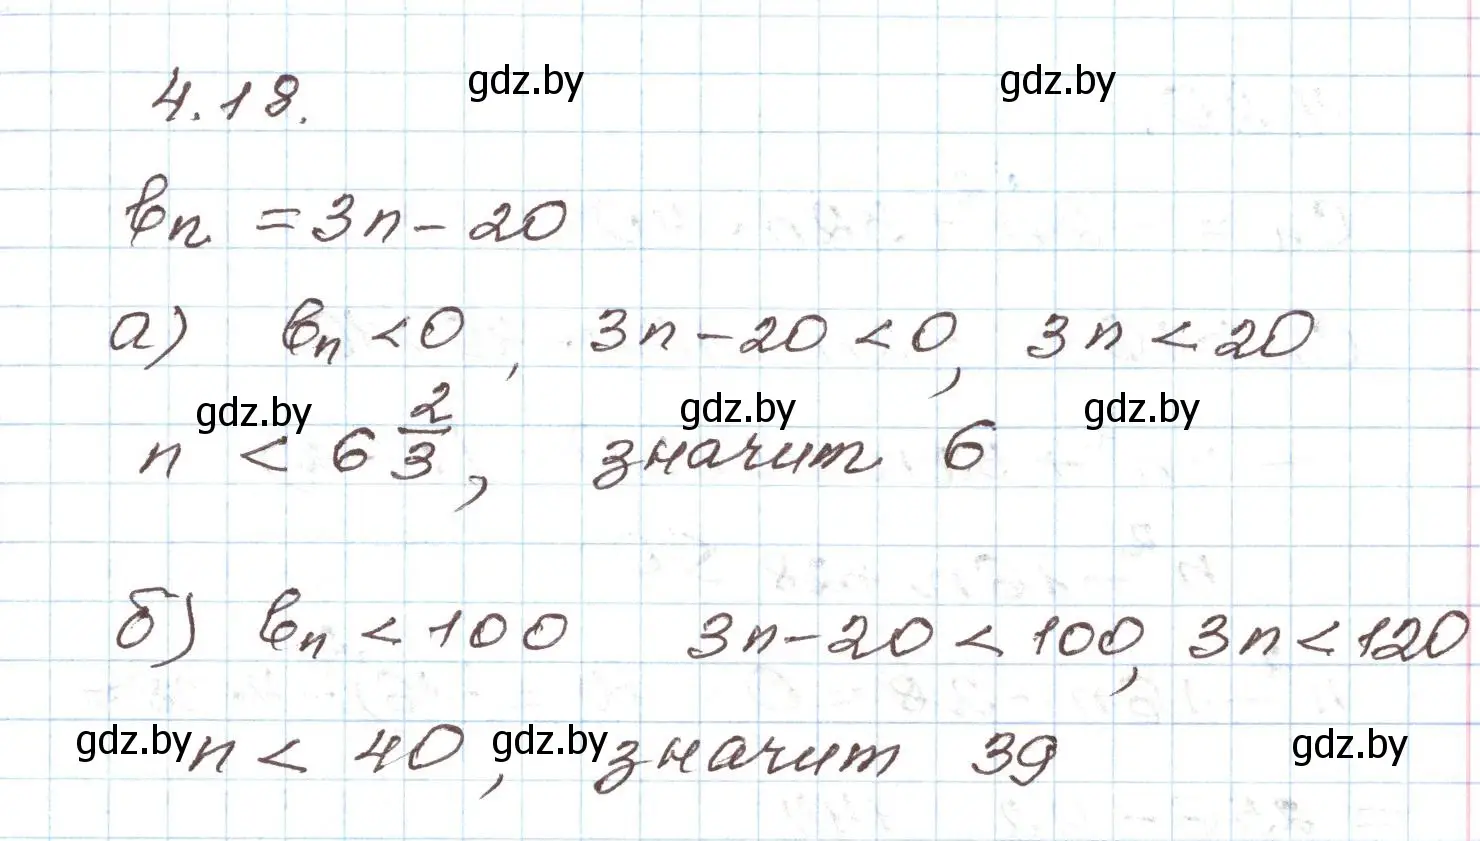 4.18.
gdz.by
gdz.by
bn = 3n - 20
а) bn < 0, 3n - 20 < 0, 3n < 20
gdz.by
gdz.by
gdz.by
n < 6 2/3, значит 6
б) bn < 100 3n - 20 < 100, 3n < 120
gdz.by
gdz.by
gdz.by
n < 40, значит 39